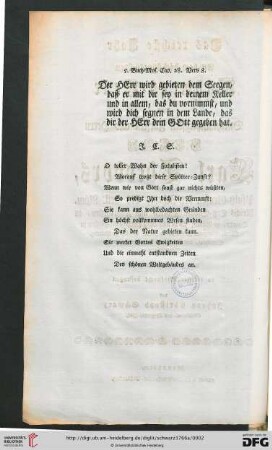 5. Buch Mos. Cap. 28. Vers 8.
Der HErr wird gebieten dem Seegen,
daß er mit dir sey in deinem Keller
und in allem, das du vornimmst, und
wird dich segnen in dem Lande, das
dir der HErr dein GOtt gegeben hat.
J. C. S.
O toller Wahn der Fatalisten!
Worauf trozt diese Spötter-Zunft?
Wenn wir von Gott sonst gar nichts wüsten,
So prediget Jhn doch die Vernunft:
Sie kann aus wohlbedachten Gründen
Ein höchst vollkommnes Wesen finden,
Das der Natur gebieten kann.
Sie merket Gottes Ewigkeiten
Und die einmahl entstandnen Zeiten
Des schönen Weltgebäudes an.
http://digi.ub.uni-heidelberg.de/diglit/schwarz1766a/0002
UNIVERSITÄTS-
BIBLIOTHEK
HEIDELBERG
Gefördert durch die
DFG